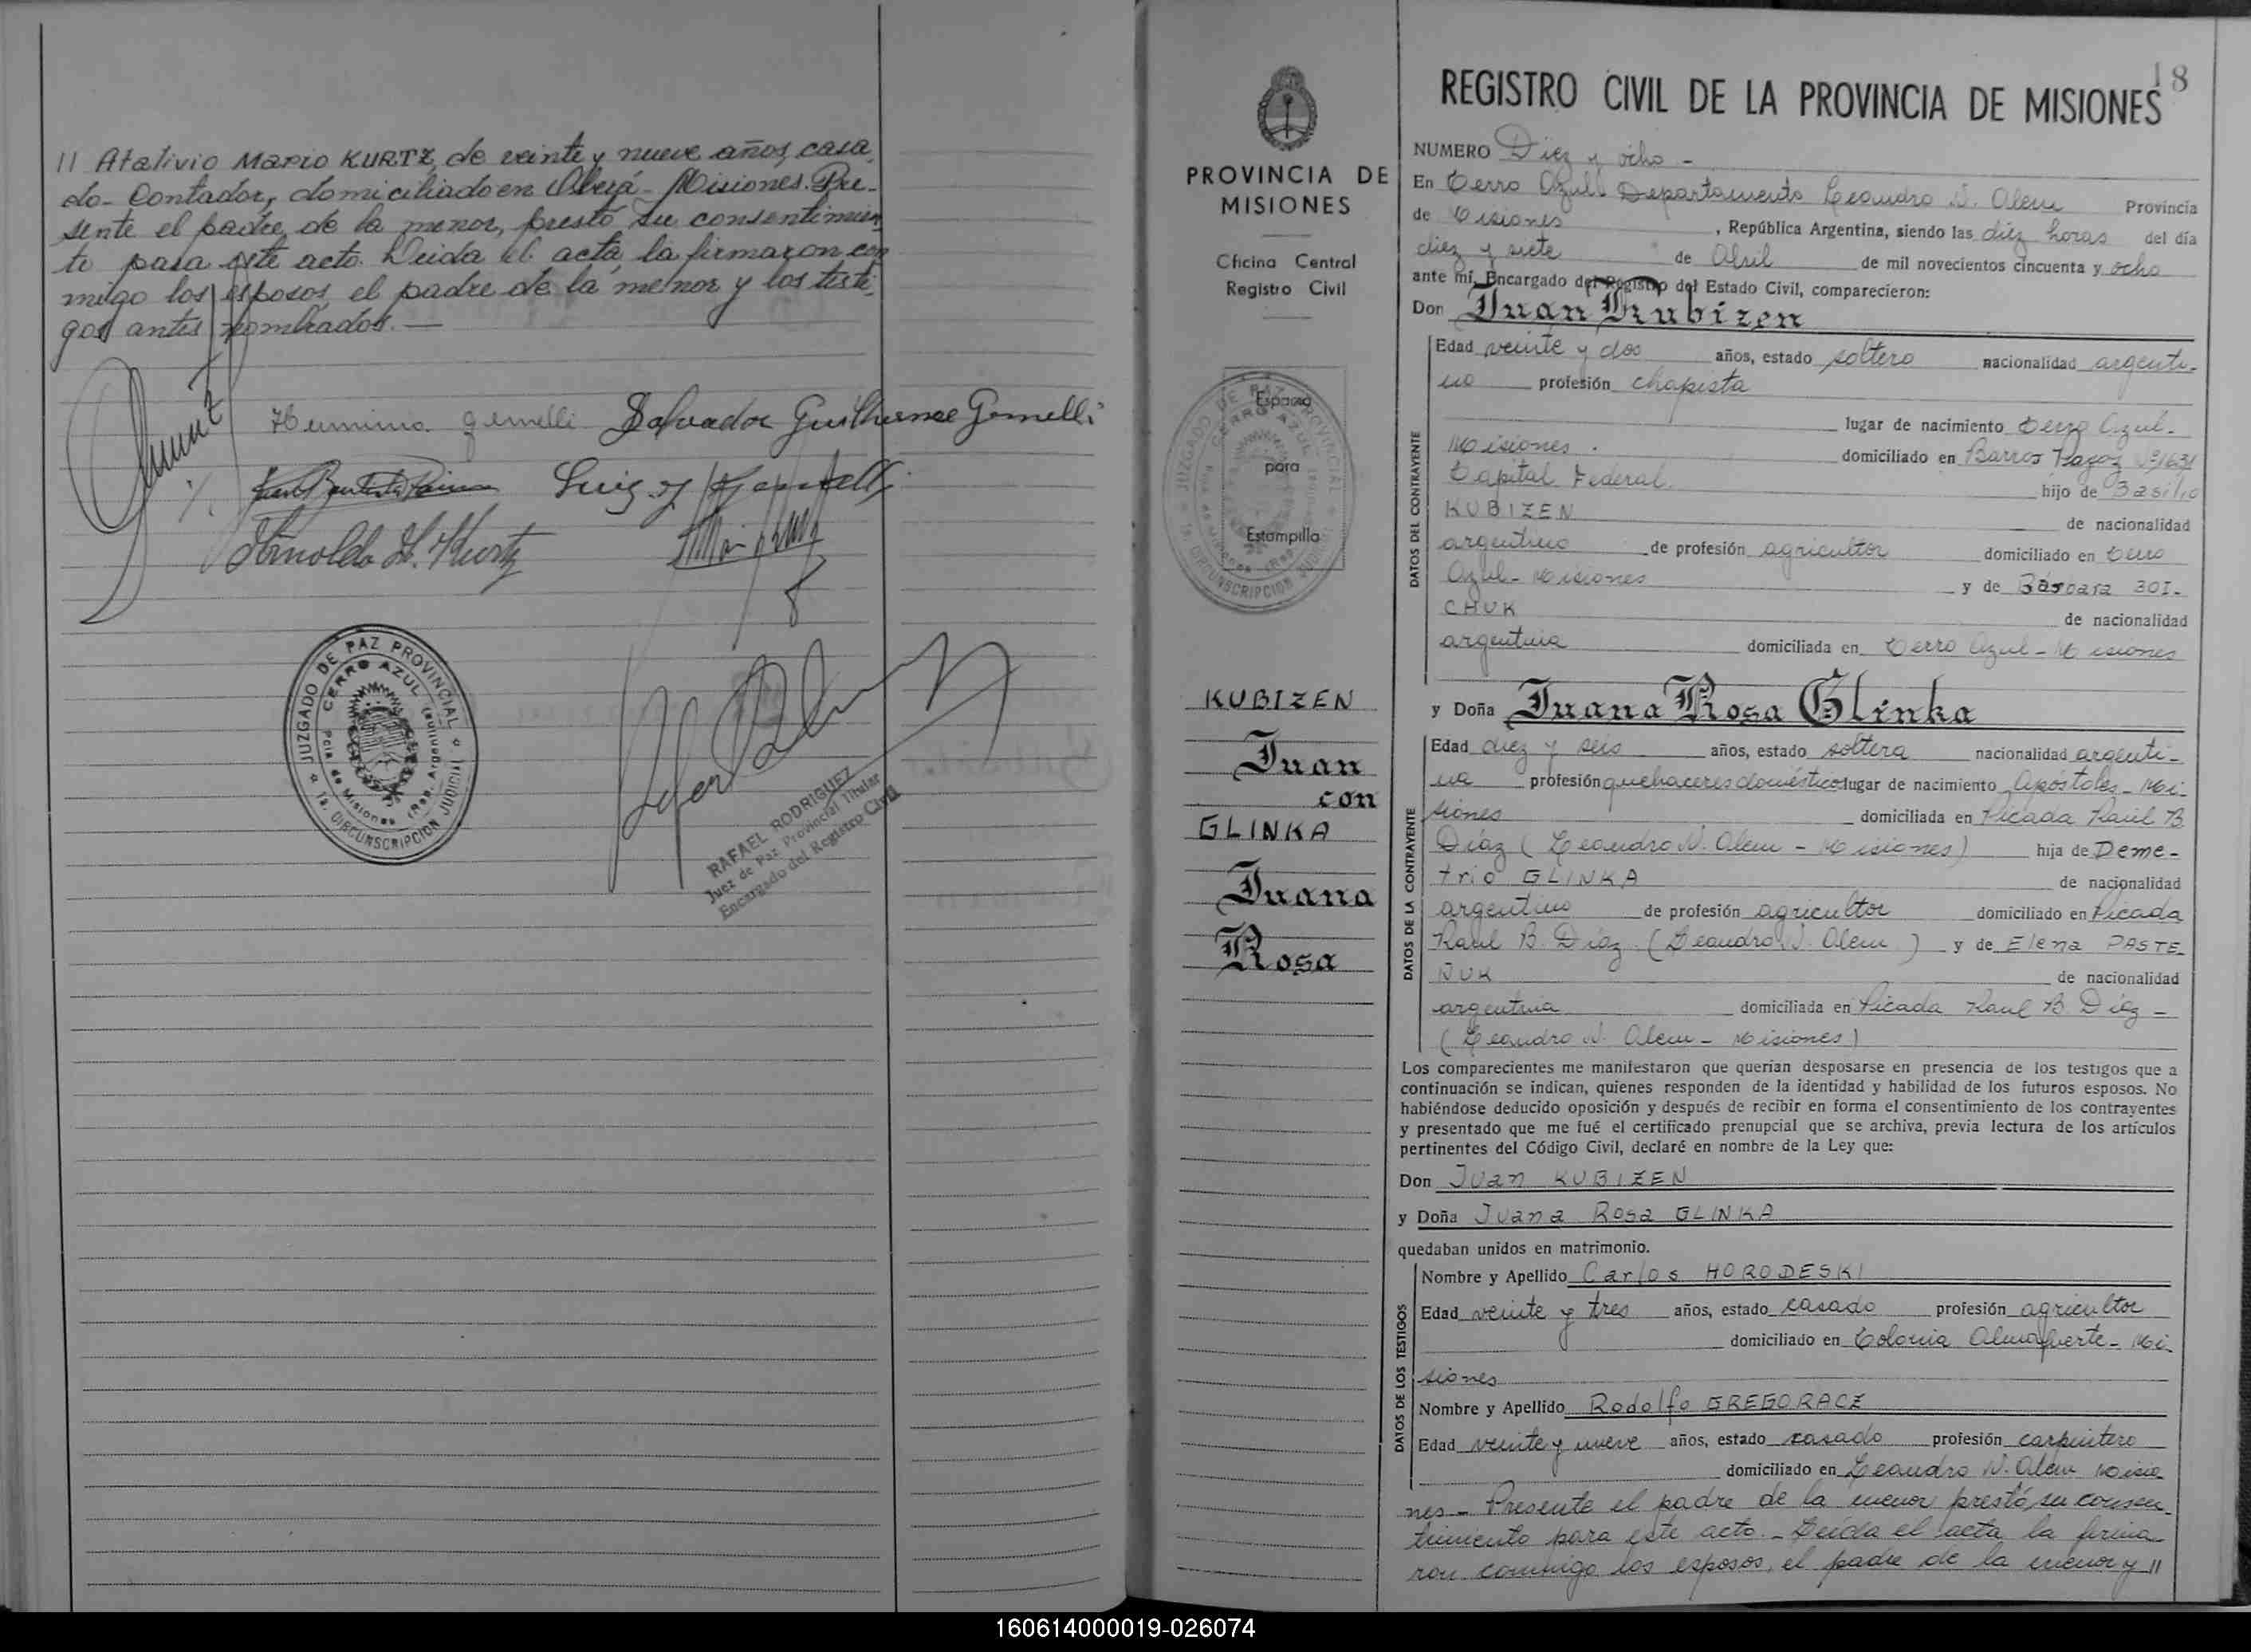 // Atalivio Mario KURTZ, de veinte y nueve años, casa
do- Contador, domiciliado en Oberá- Misiones. Pre-
sente el padre de la menor, prestó su consentimien
to para este acto. Leida el acta, la firmaron con
migo los esposos, el padre de la menor y los testi-
gos antes nombrados. —
Herminia Gemelli Salvador Guilherme Gemelli
Luiz
Arnoldo H. Kurtz
JUZGADO DE PAZ PROVINCIAL
CERRO AZUL
Pcia de Misiones (Rep. Argentina)
1a. CIRCUNSCRIPCION JUDICIAL
RAFAEL RODRIGUEZ
Juez de Paz Provincial Titular
Encargado del Registro Civil
PROVINCIA DE
MISIONES
Oficina Central
Registro Civil
JUZGADO DE PAZ PROVINCIAL
CERRO AZUL
1a. CIRCUNSCRIPCION JUDICIAL
Espacio
para
Estampilla
KUBIZEN
Juan
con
GLINKA
Juana
Rosa
18
REGISTRO CIVIL DE LA PROVINCIA DE MISIONES
NUMERO Diez y ocho -
En Cerro Azul Departamento Leandro N. Alem Provincia
de Misiones, República Argentina, siendo las diez horas del día
diez y siete de Abril de mil novecientos cincuenta y ocho
ante mí, Encargado del Registro del Estado Civil, comparecieron:
Don Juan Kubizen
DATOS DEL CONTRAYENTE
Edad veinte y dos años, estado soltero nacionalidad argenti-
no profesión chapista
lugar de nacimiento Cerro Azul-
Misiones. domiciliado en Barros Pazos Nº1631
Capital Federal hijo de Basilio
KUBIZEN de nacionalidad
argentino de profesión agricultor domiciliado en Cerro
Azul- Misiones y de Bárbara BOI-
CHUK de nacionalidad
argentina domiciliada en Cerro Azul - Misiones
y Doña Juana Rosa Glinka
DATOS DE LA CONTRAYENTE
Edad diez y seis años, estado soltera nacionalidad argenti-
na profesión quehaceres domésticos lugar de nacimiento Apóstoles - Mi-
siones domiciliada en Picada Raúl B
Díaz (Leandro N. Alem - Misiones) hija de Deme-
trio GLINKA de nacionalidad
argentino de profesión agricultor domiciliado en Picada
Raul B. Díaz (Leandro N. Alem) y de Elena PASTE-
ÑUK de nacionalidad
argentina domiciliada en Picada Raul B. Díaz -
(Leandro N. Alem - Misiones)
Los comparecientes me manifestaron que querían desposarse en presencia de los testigos que a
continuación se indican, quienes responden de la identidad y habilidad de los futuros esposos. No
habiéndose deducido oposición y después de recibir en forma el consentimiento de los contrayentes
y presentado que me fué el certificado prenupcial que se archiva, previa lectura de los artículos
pertinentes del Código Civil, declaré en nombre de la Ley que:
Don Juan KUBIZEN
y Doña Juana Rosa GLINKA
quedaban unidos en matrimonio.
DATOS DE LOS TESTIGOS
Nombre y Apellido Carlos HORODESKI
Edad veinte y tres años, estado casado profesión agricultor
domiciliado en Colonia Almafuerte- Mi-
siones
Nombre y Apellido Rodolfo GREGORACZ
Edad veinte y nueve años, estado casado profesión carpintero
domiciliado en Leandro N. Alem Misio
nes - Presente el padre de la menor prestó su consen-
timiento para este acto. - Leída el acta la firma
ron conmigo los esposos, el padre de la menor y //
160614000019-026074